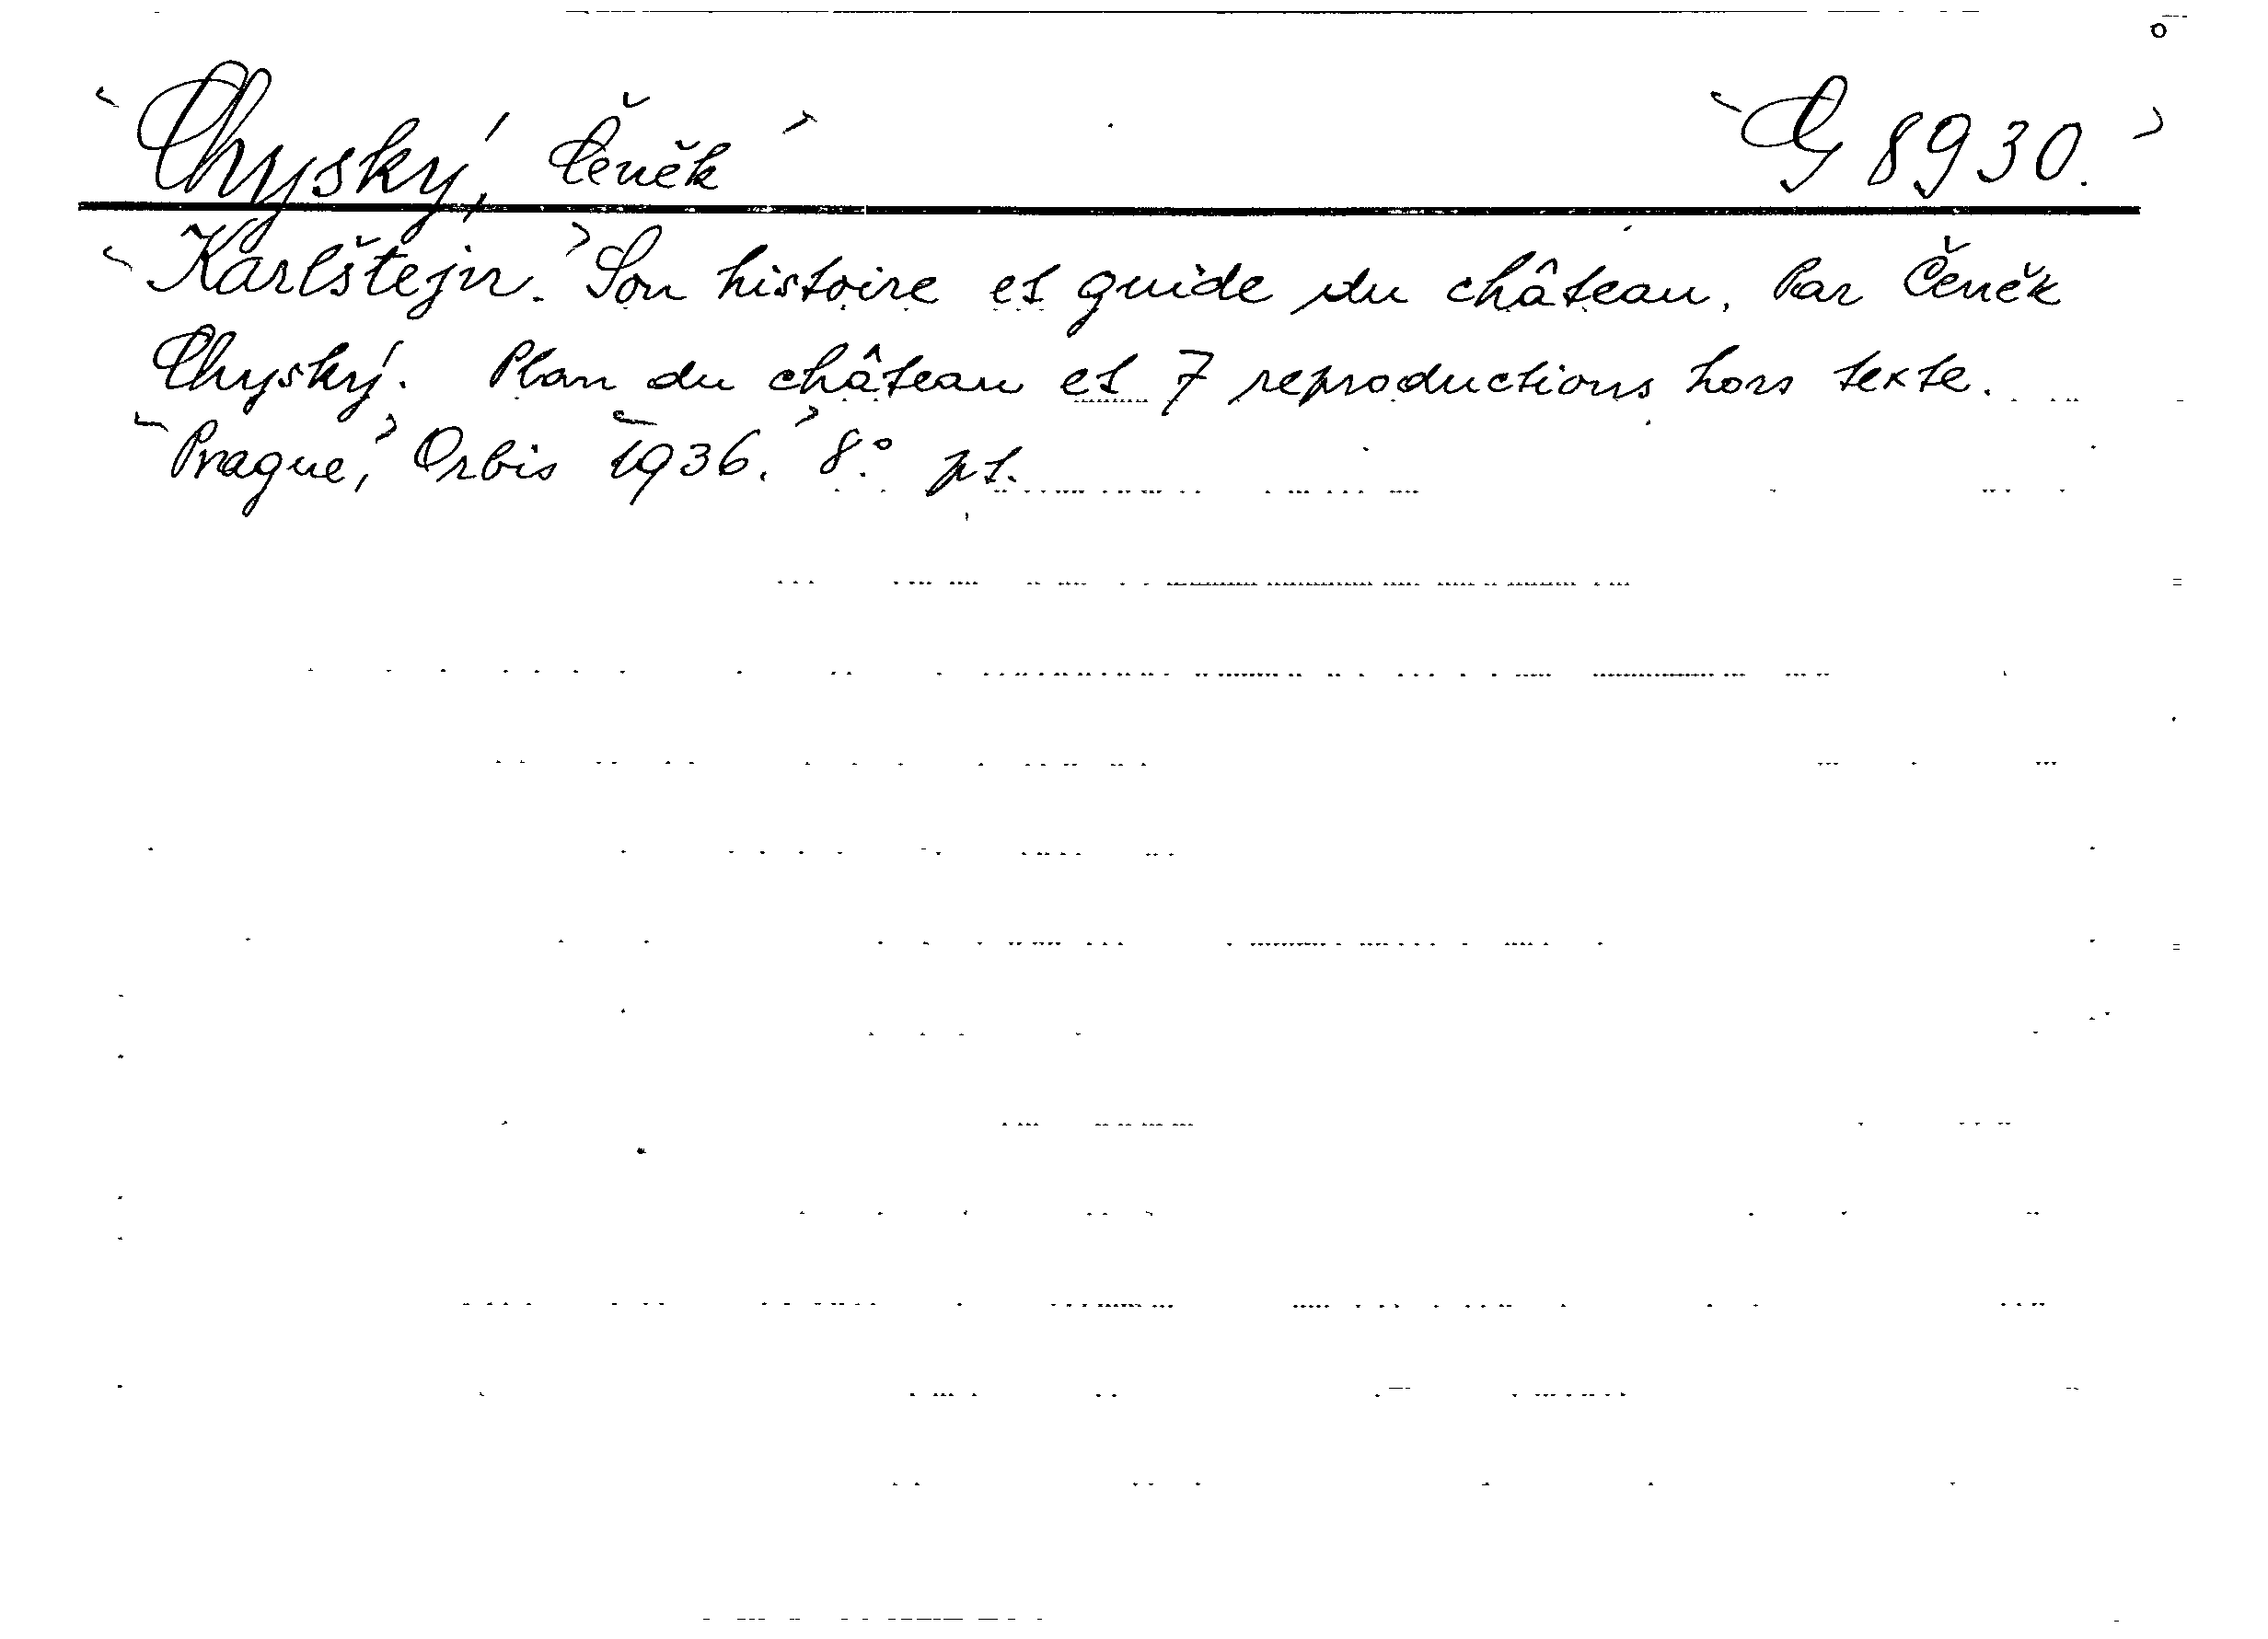 Chyský, Čeněk G 8930.
Karlštejn. Son histoire et guide du château. Par Čeněk
Chyský. Plan du château et 7 reproductions hors texte.
Prague, Orbis 1936. 8° pt.